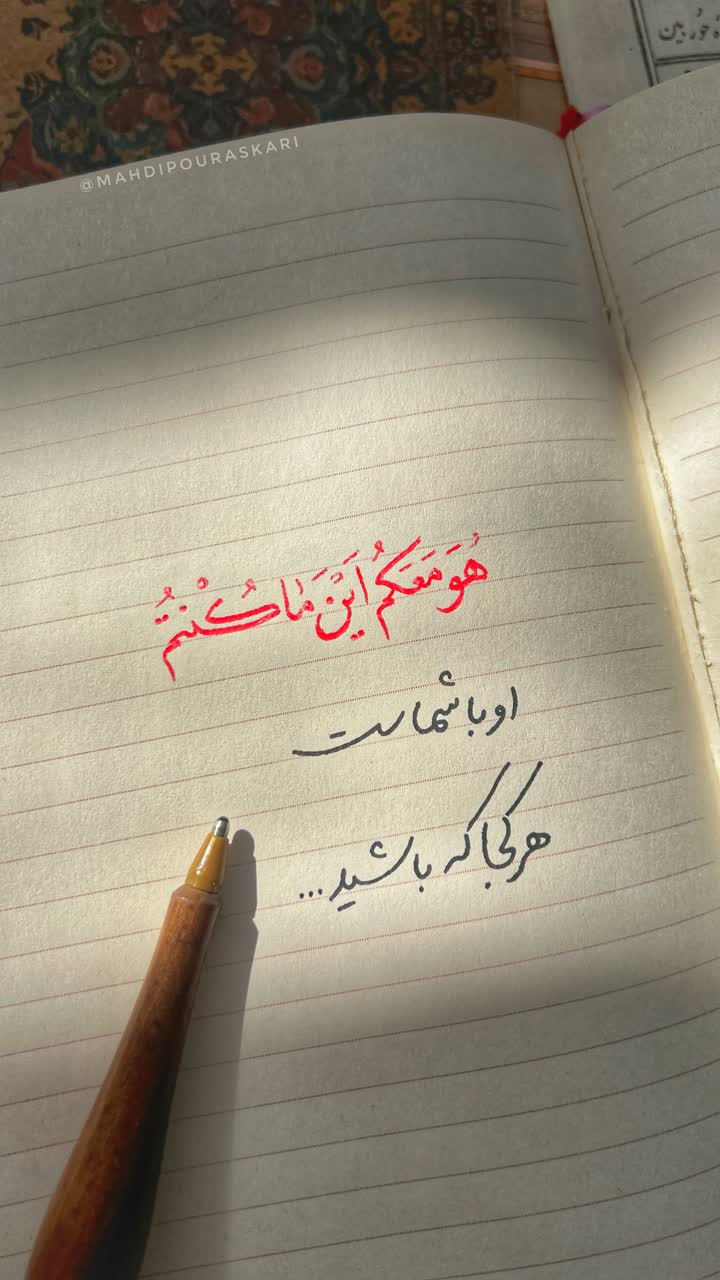 @MAHDIPOURASKARI
هُوَ مَعَكُمُ اَيْنَ مٰا كُنْتُمُ
او با شماست
هر کجا که باشید...